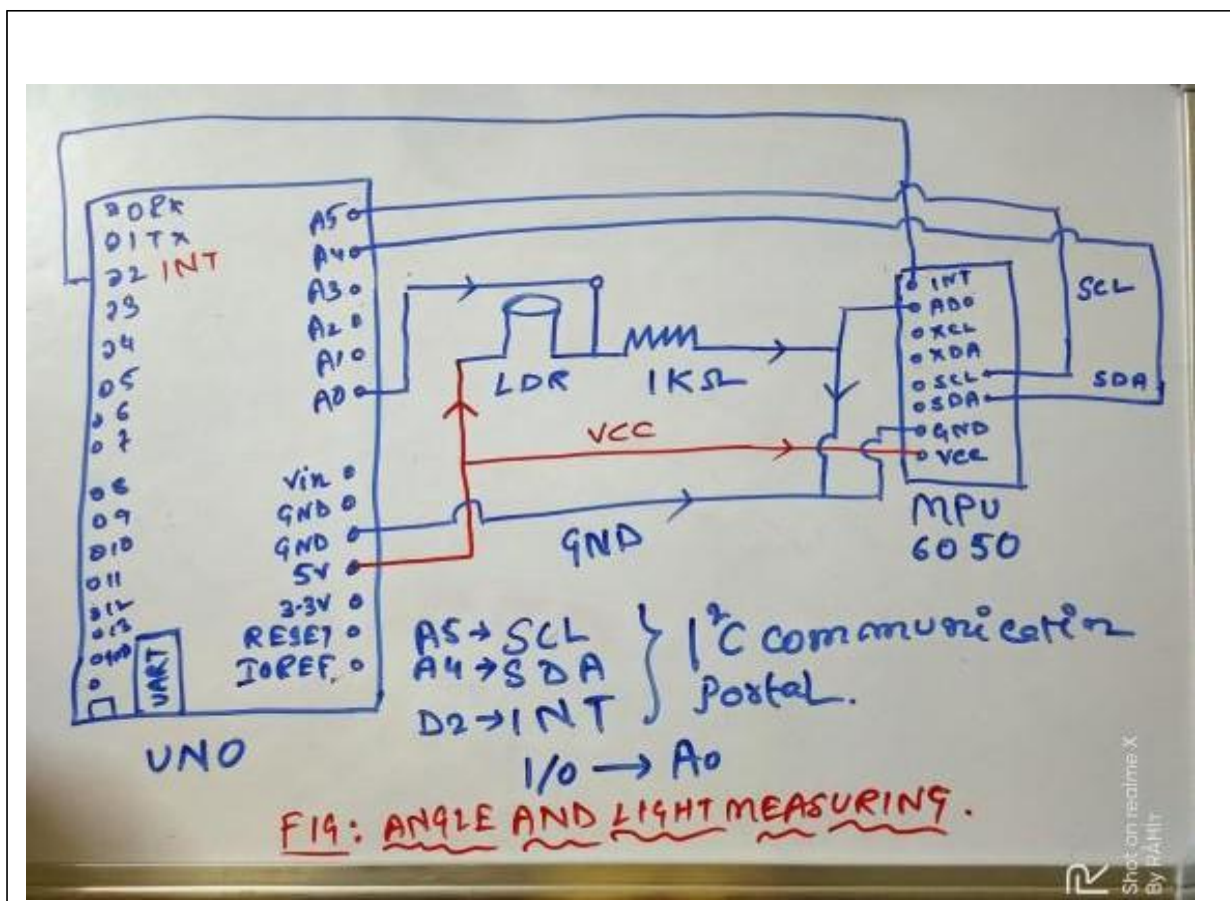 0RX
01TX
02 INT
03
04
05
06
07
08
09
010
011
012
013
GND
UART
A5
A4
A3
A2
A1
A0
Vin
GND
GND
5V
3.3V
RESET
IOREF
UNO
LDR
1KΩ
VCC
GND
INT
AD0
XCL
XDA
SCL
SDA
GND
VCC
SCL
SDA
MPU
6050
A5→SCL
A4→SDA
D2→INT
I²C communication
Portal.
I/O → A0
FIG: ANGLE AND LIGHT MEASURING.
R
Shot on realme X
By RAHIT